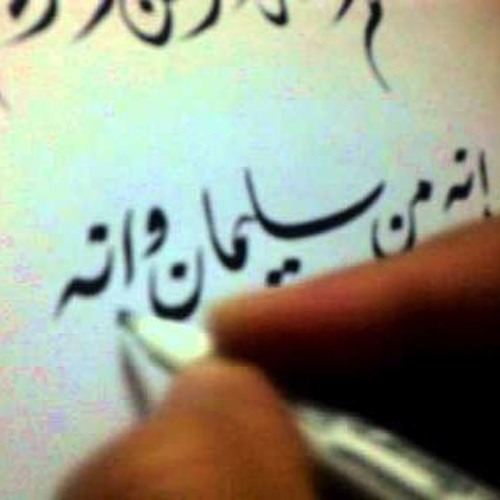 انه من سليمان وانه